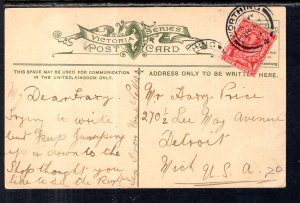 VICTORIA SERIES
POST CARD
WORTHING
THIS SPACE MAY BE USED FOR COMMUNICATION
IN THE UNITED KINGDOM ONLY.
ADDRESS ONLY TO BE WRITTEN HERE.
My Dear Harry
Trying to write
but Keep Jumping
up or down to the
Shop thought you
like to see the
Mr Harry Price
270½ Lee May Avenue
Detroit
Mich U.S.A.
20